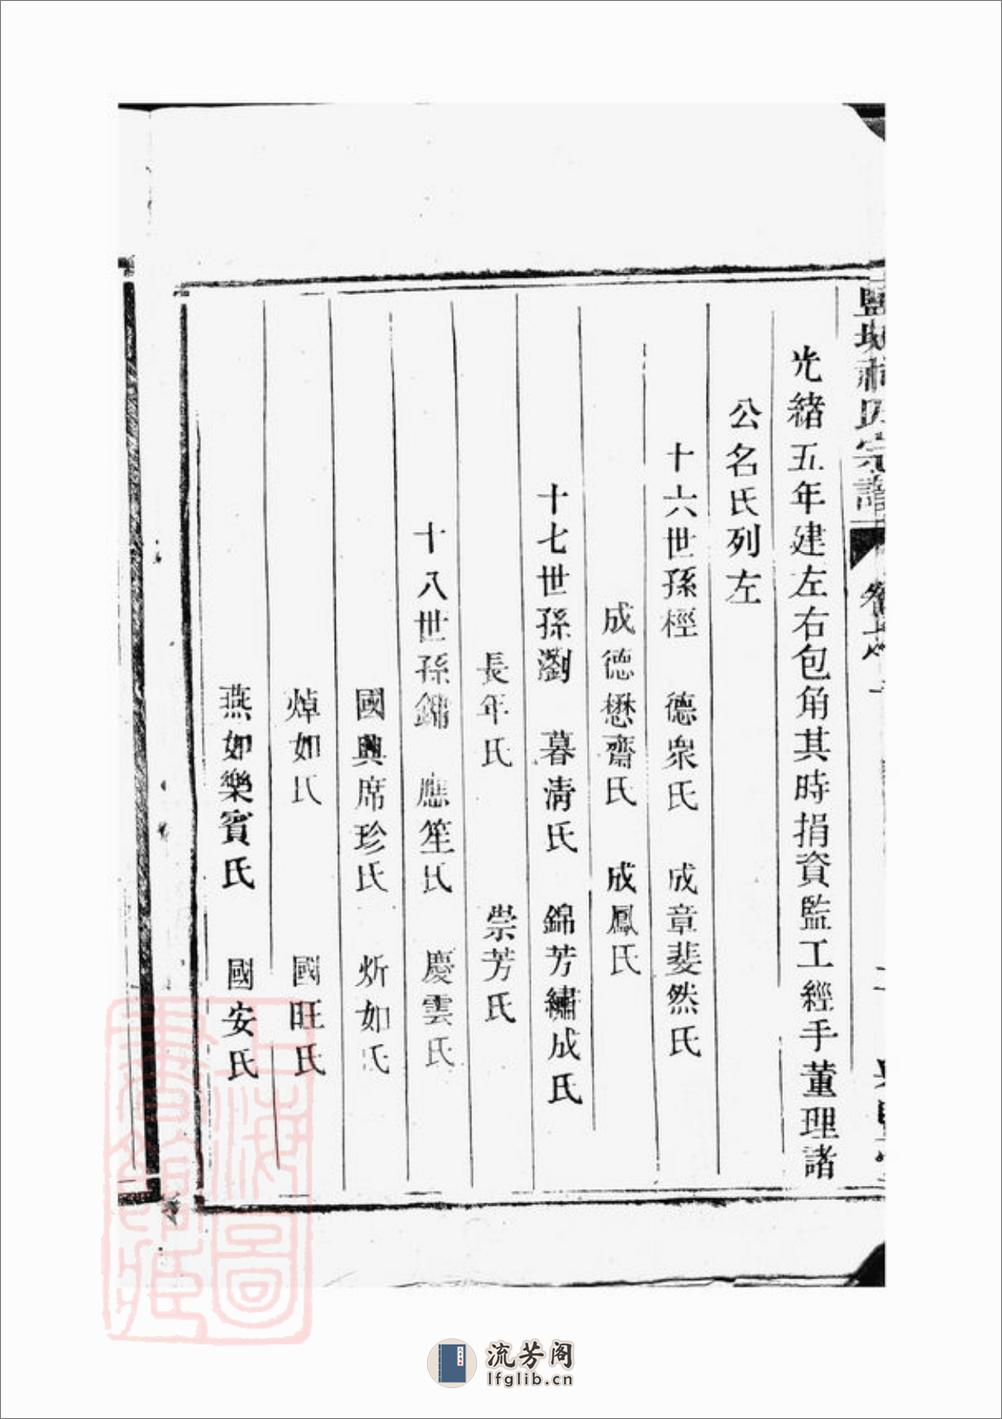 光緒五年建左右包角其時捐資監工經手董理諸
公名氏列左
十六世孫桱 德衆氏 成章斐然氏
成德懋齋氏 成鳳氏
十七世孫瀏 暮清氏 錦芳繡成氏
長年氏 崇芳氏
十八世孫鏽 應笙氏 慶雲氏
國興席珍氏 炘如氏
焯如氏 國旺氏
燕如樂賓氏 國安氏
氏宗譜
上海圖書館藏
流芳阁
lfglib.cn